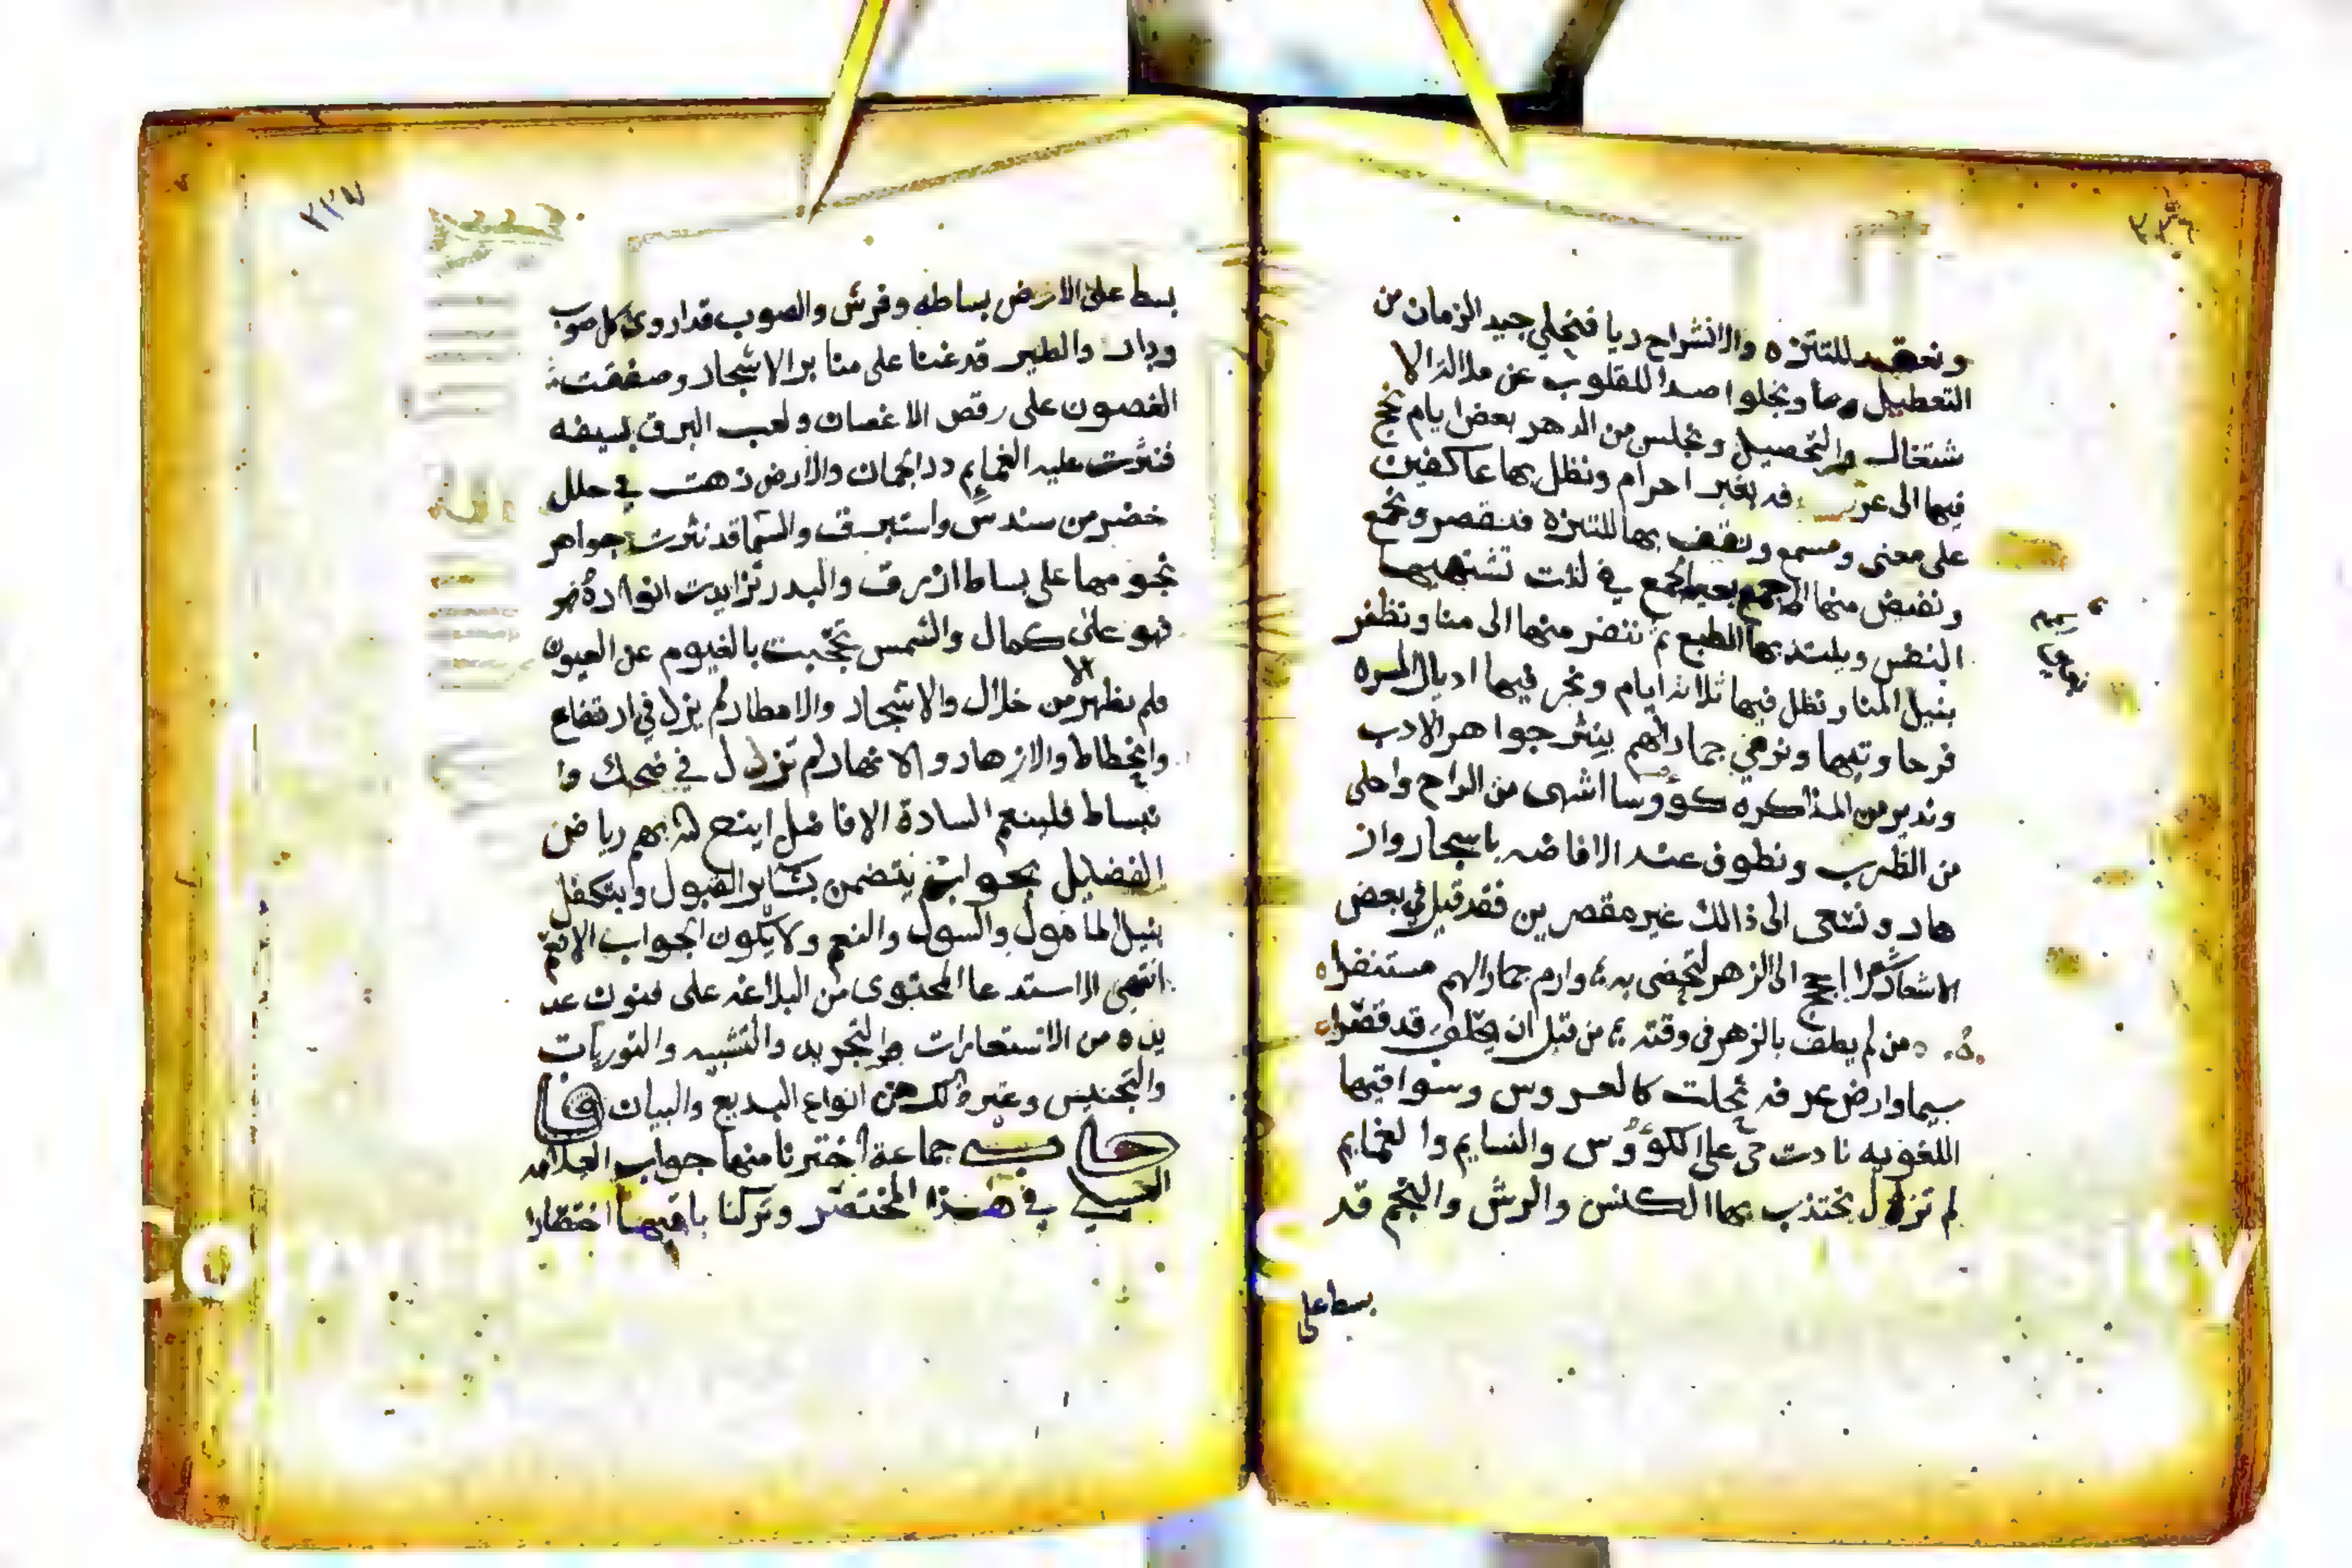 ونعقد للتنزه والانشراح ديا فنحلي جيد الزمان من
التعطيل ونجلوا صدا القلوب عن ملالة الا
شتغال والتحصيل ونختلس من الدهر بعض ايام نحج
فيها الى عرفه بغير احرام ونظل بها عاكفين
على معنى ومسمع ونقف بها للتنزه فنقصر ونجمع
ونفيض منها الجمع في لذات تشتهيها
النفس ويلتذ بها الطبع ثم ننفر منها الى منا ونظفر
بنيل المنا ونظل فيها ثلاثة ايام ونجر فيها اديال المسره
فرحا وتيها ونرمي جمار الهم بنثر جواهر الادب
وندير من المذاكره كؤوسا اشهى من الراح واحلى
من الظرب ونطوف عند الافاضه باسجار واز
هار ونسعى الى ذالك غير مقصرين فقد قيل في بعض
الاشعار احجج الى الزهر لتحضى به وارم جمار الهم مستنفرا
من لم يطف بالزهر في وقته من قبل ان يحلق قد قصرا
سيما وارض عرفه تجلت كالعروس وسواقيها
اللغوبه نادت حي على الكؤوس والنسايم والغمايم
لم تزل تختذب بها الكنس والرش والنجم قد
بسط على
٢٢٧
بسط على الارض بساطه وفرش والصوب قد اروى كل صوب
ودار والطير قد غنا على منابر الاشجار وصفقت
الغصون على رقص الاغصان ولعب البرق بسيفه
فنثرت عليه الغمايم در الجمان والارض زهت في حلل
خضر من سندس واستبرق والسما قد نثرت جواهر
نجومها على بساط ازرق والبدر تزايدت انواره
فهو على كمال والشمس تحجبت بالغيوم عن العيون
فلم تظهر الا من خلال والاشجار والامطار لم يزل في ارتفاع
وانخطاط والازهار والانهار لم تزل في ضحك وا
نبساط فلينعم السادة الافاضل اينع الله بهم رياض
الفضل بجواب يتضمن بشاير القبول ويتكفل
بنيل المامول والسول والنعم ولا يكون الجواب الا نعم
انتهى الاستدعا المحتوى من البلاغه على فنون عد
يده من الاستعارات والتجريد والتشبيه والتوريات
والتجنيس وغير ذالك من انواع البديع والبيان فا
جابه جماعة اخترنا منها جواب العلامه
في هذا المختصر وتركنا باقيها اختصارا